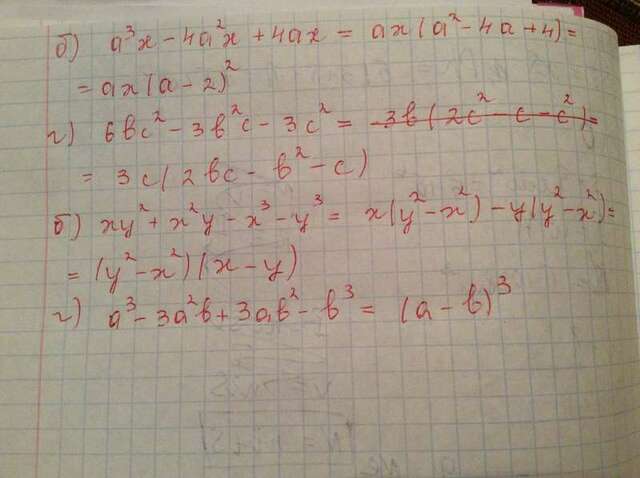 б) a³x - 4a²x + 4ax = ax(a² - 4a + 4) =
= ax(a - 2)²
г) 6bc² - 3b²c - 3c² = 3b(2c² - c - c²) =
= 3c(2bc - b² - c)
б) xy² + x²y - x³ - y³ = x(y² - x²) - y(y² - x²) =
= (y² - x²)(x - y)
г) a³ - 3a²b + 3ab² - b³ = (a - b)³